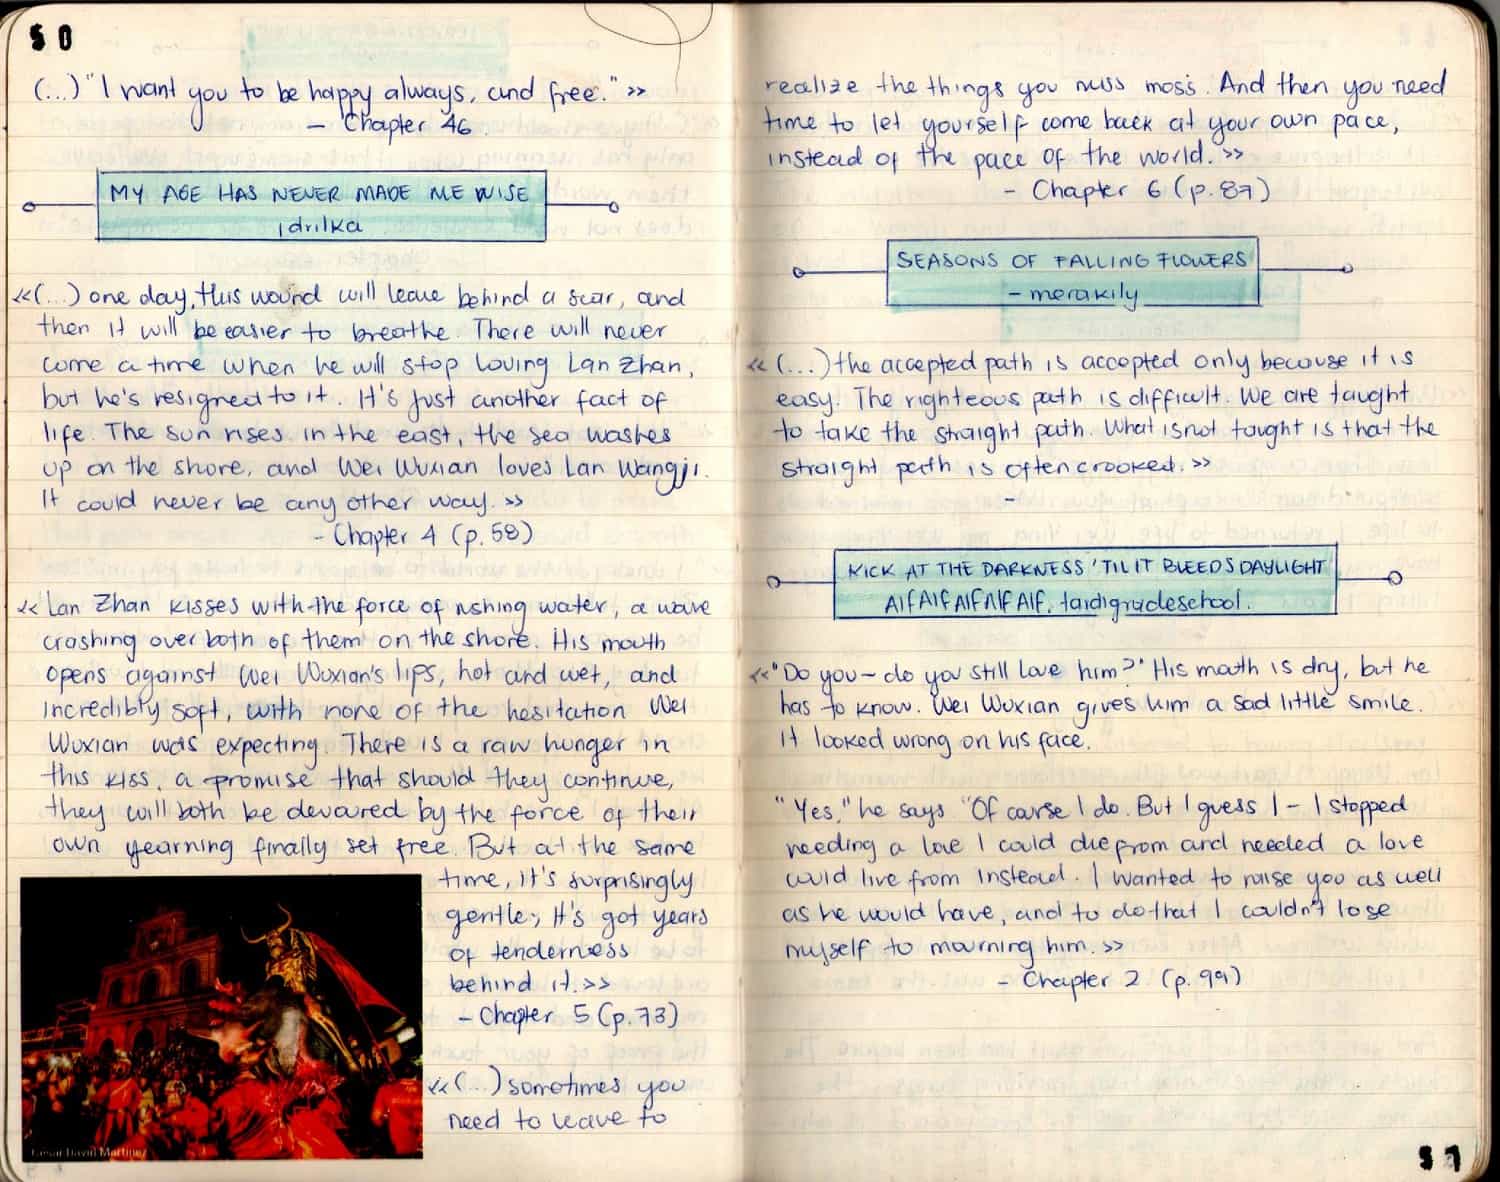 50
(...) "I want you to be happy always, and free." >>
- Chapter 46
MY AGE HAS NEVER MADE ME WISE
idrilka
<<(...) one day, this wound will leave behind a scar, and
then it will be easier to breathe. There will never
come a time when he will stop loving Lan Zhan,
but he's resigned to it. It's just another fact of
life. The sun rises in the east, the sea washes
up on the shore, and Wei Wuxian loves Lan Wangji.
It could never be any other way. >>
- Chapter 4 (p.58)
<< Lan Zhan kisses with the force of rushing water, a wave
crashing over both of them on the shore. His mouth
opens against Wei Wuxian's lips, hot and wet, and
incredibly soft, with none of the hesitation Wei
Wuxian was expecting. There is a raw hunger in
this kiss, a promise that should they continue,
they will both be devoured by the force of their
own yearning finally set free. But at the same
time, it's surprisingly
gentle; it's got years
of tenderness
behind it. >>
- Chapter 5 (p.73)
<<(...) sometimes you
need to leave to
Cesar David Martinez
realize the things you miss most. And then you need
time to let yourself come back at your own pace,
instead of the pace of the world. >>
- Chapter 6 (p.87)
SEASONS OF FALLING FLOWERS
- merakily
<< (...) the accepted path is accepted only because it is
easy. The righteous path is difficult. We are taught
to take the straight path. What is not taught is that the
straight path is often crooked. >>
-
KICK AT THE DARKNESS 'TIL IT BLEEDS DAYLIGHT
AlfAlfAlfAlfAlf, tardigradeschool.
<< "Do you - do you still love him?" His mouth is dry, but he
has to know. Wei Wuxian gives him a sad little smile.
It looked wrong on his face.
"Yes," he says. "Of course I do. But I guess I - I stopped
needing a love I could die from and needed a love
I could live from instead. I wanted to raise you as well
as he would have, and to do that I couldn't lose
myself to mourning him. >>
- Chapter 2 (p.99)
51